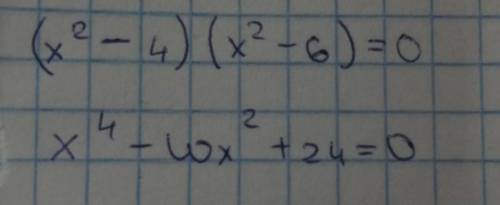 (x² - 4)(x² - 6) = 0
x⁴ - 10x² + 24 = 0